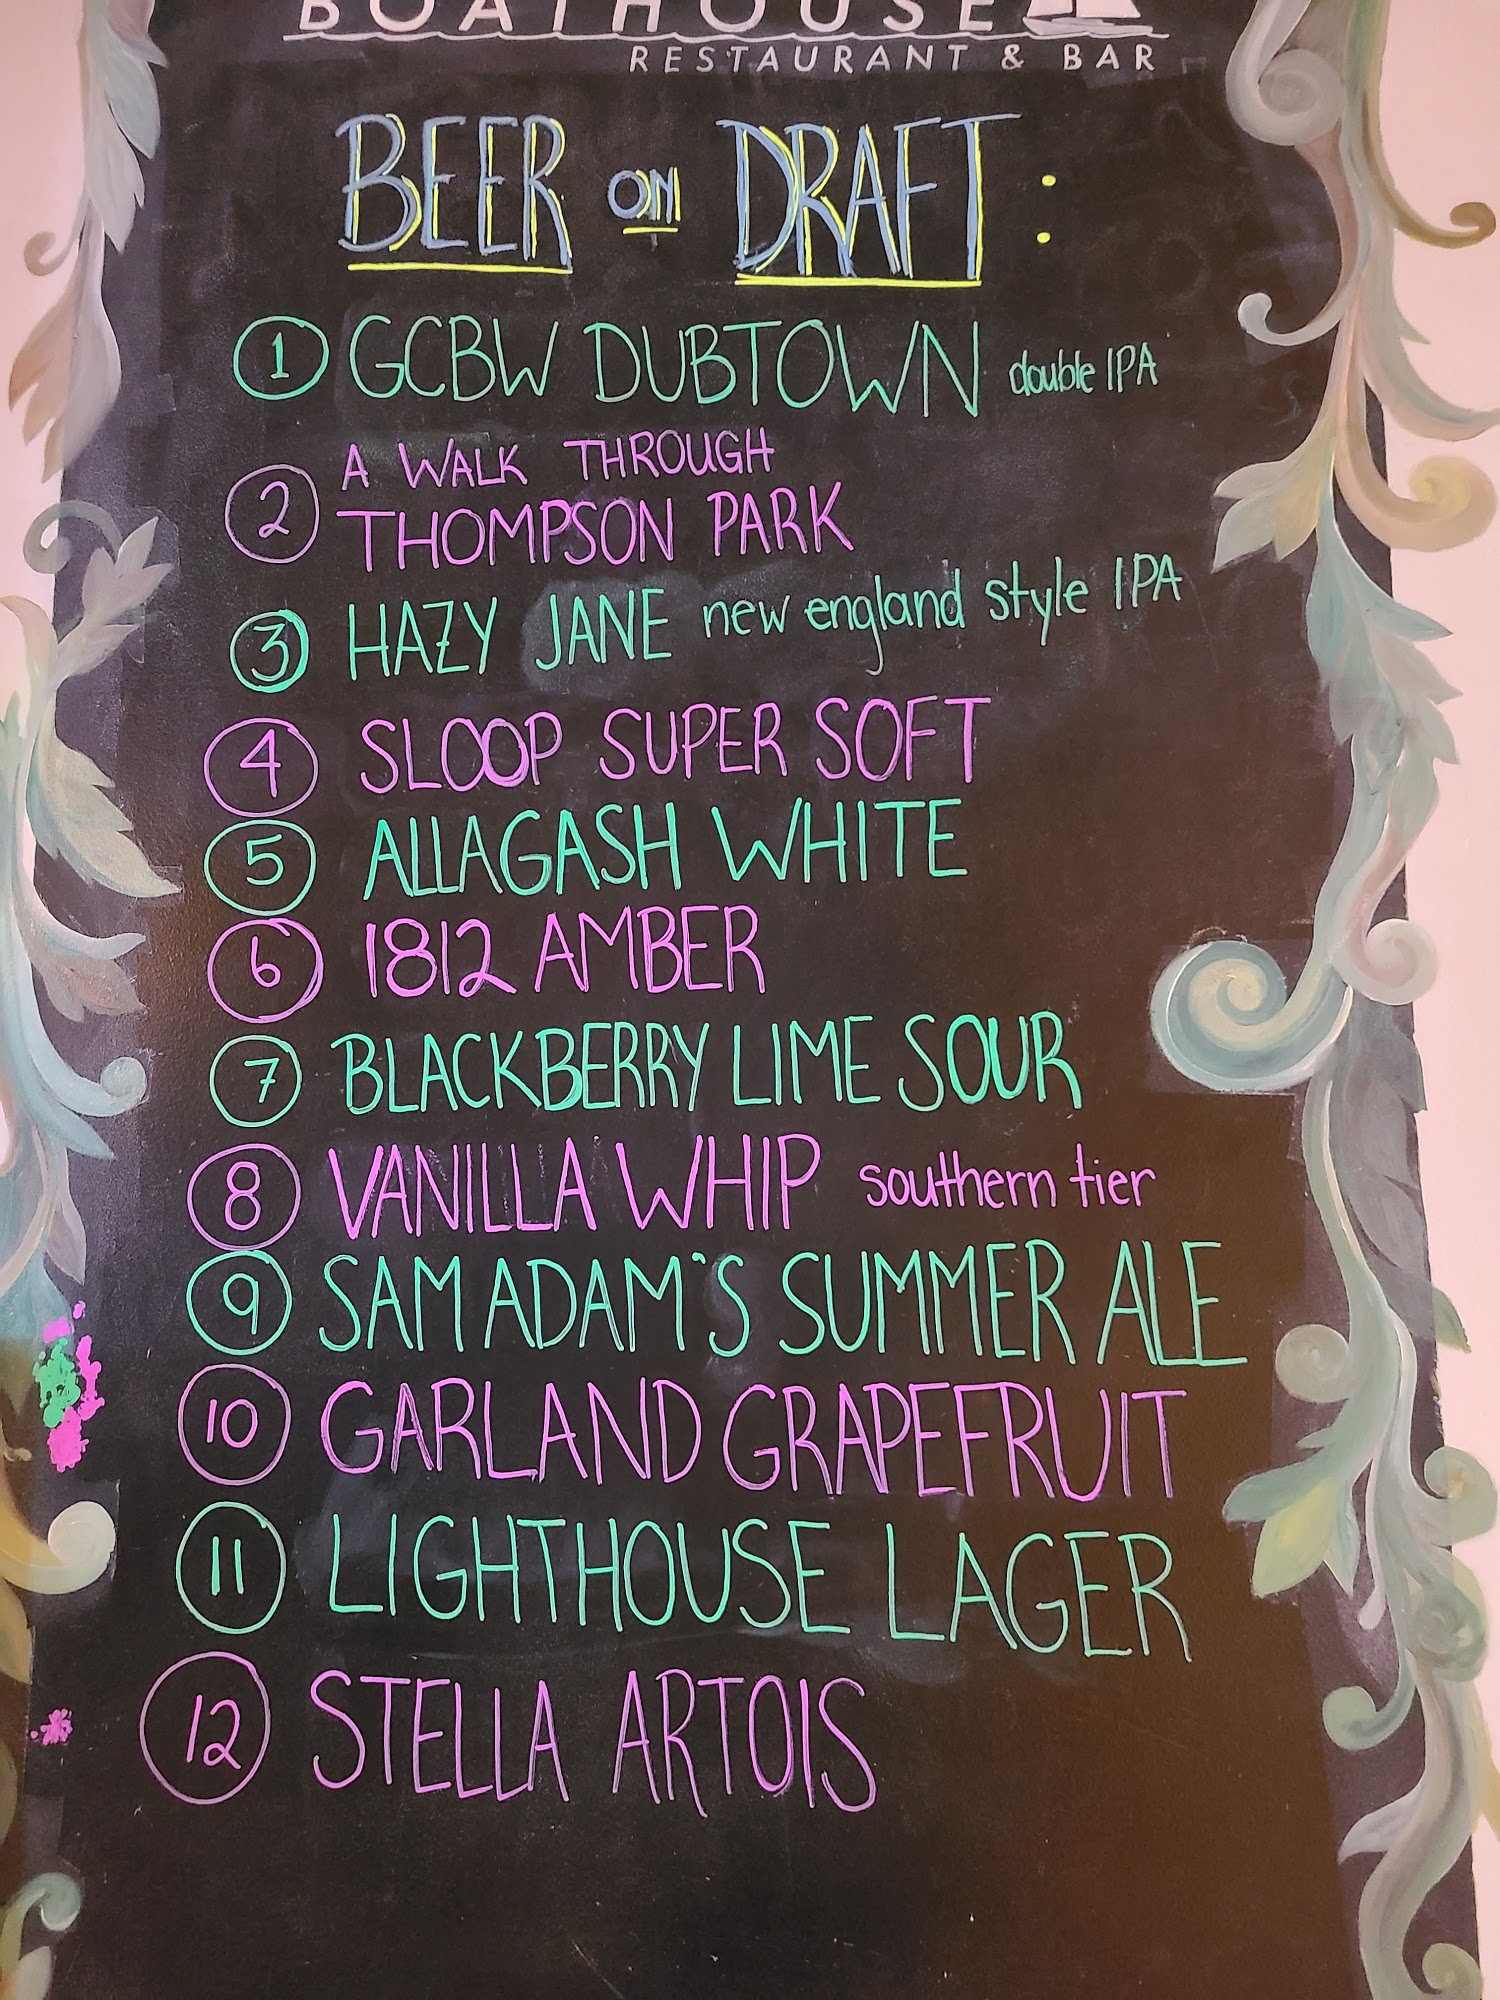 BOATHOUSE
RESTAURANT & BAR
BEER ON DRAFT :
1 GCBW DUBTOWN double IPA
2 A WALK THROUGH
THOMPSON PARK
3 HAZY JANE new england style IPA
4 SLOOP SUPER SOFT
5 ALLAGASH WHITE
6 1812 AMBER
7 BLACKBERRY LIME SOUR
8 VANILLA WHIP southern tier
9 SAM ADAM'S SUMMER ALE
10 GARLAND GRAPEFRUIT
11 LIGHTHOUSE LAGER
12 STELLA ARTOIS